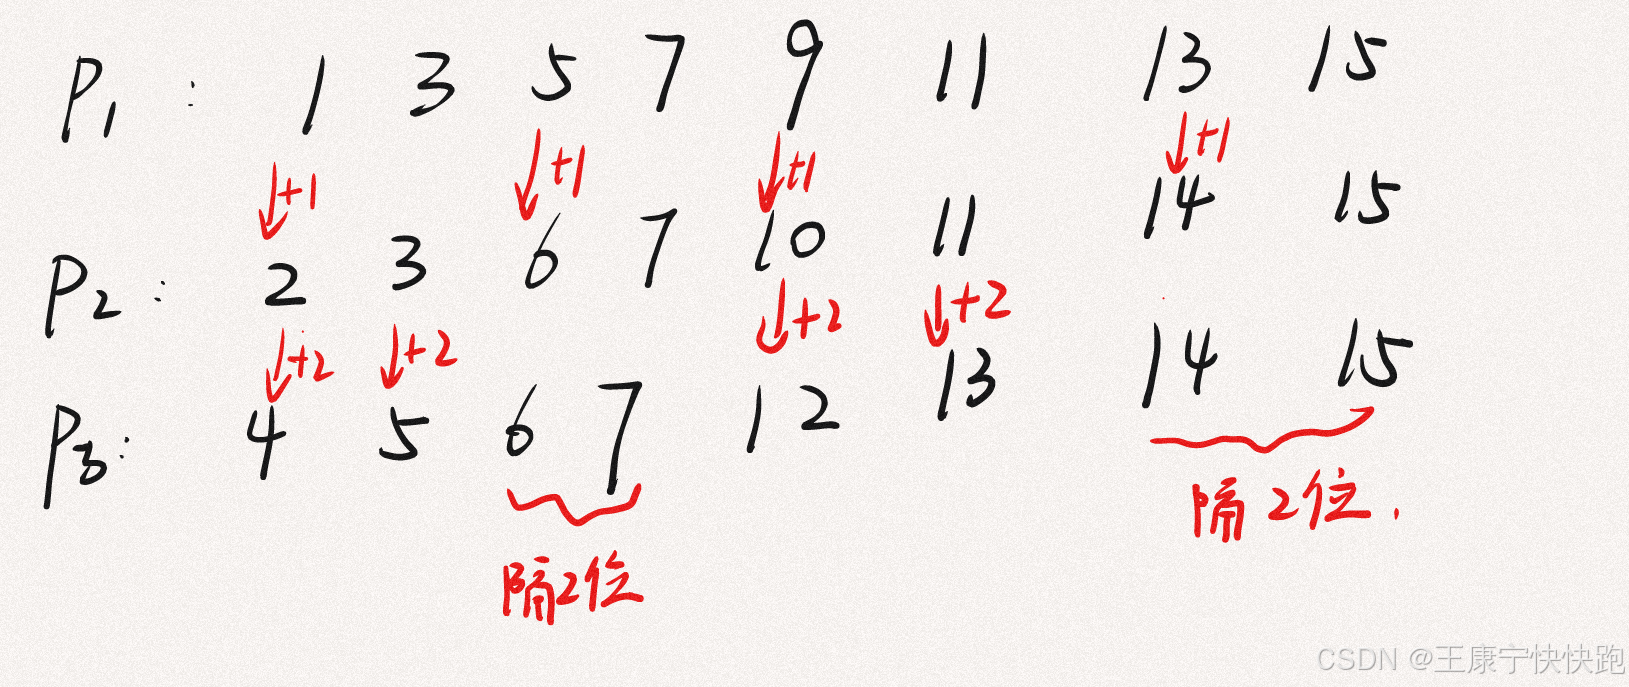 P1: 1 3 5 7 9 11 13 15
+1 +1 +1 +1
P2: 2 3 6 7 10 11 14 15
+2 +2 +2 +2
P3: 4 5 6 7 12 13 14 15
隔2位
隔2位.
CSDN @王康宁快快跑